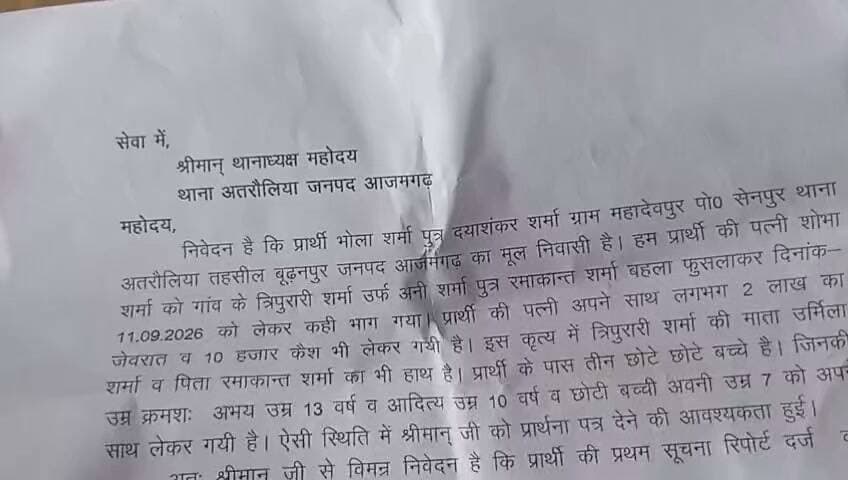 सेवा में,
श्रीमान् थानाध्यक्ष महोदय
थाना अतरौलिया जनपद आजमगढ़
महोदय,
निवेदन है कि प्रार्थी भोला शर्मा पुत्र दयाशंकर शर्मा ग्राम महादेवपुर पो0 सेनपुर थाना
अतरौलिया तहसील बूढ़नपुर जनपद आजमगढ़ का मूल निवासी है। हम प्रार्थी की पत्नी शोभा
शर्मा को गांव के त्रिपुरारी शर्मा उर्फ अनी शर्मा पुत्र रमाकान्त शर्मा बहला फुसलाकर दिनांक–
11.09.2026 को लेकर कही भाग गया। प्रार्थी की पत्नी अपने साथ लगभग 2 लाख का
जेवरात व 10 हजार कैश भी लेकर गयी है। इस कृत्य में त्रिपुरारी शर्मा की माता उर्मिला
शर्मा व पिता रमाकान्त शर्मा का भी हाथ है। प्रार्थी के पास तीन छोटे छोटे बच्चे है। जिनकी
उम्र क्रमशः अभय उम्र 13 वर्ष व आदित्य उम्र 10 वर्ष व छोटी बच्ची अवनी उम्र 7 को
साथ लेकर गयी है। ऐसी स्थिति में श्रीमान् जी को प्रार्थना पत्र देने की आवश्यकता हुई।
अतः श्रीमान जी से विनम्र निवेदन है कि प्रार्थी की प्रथम सूचना रिपोर्ट दर्ज